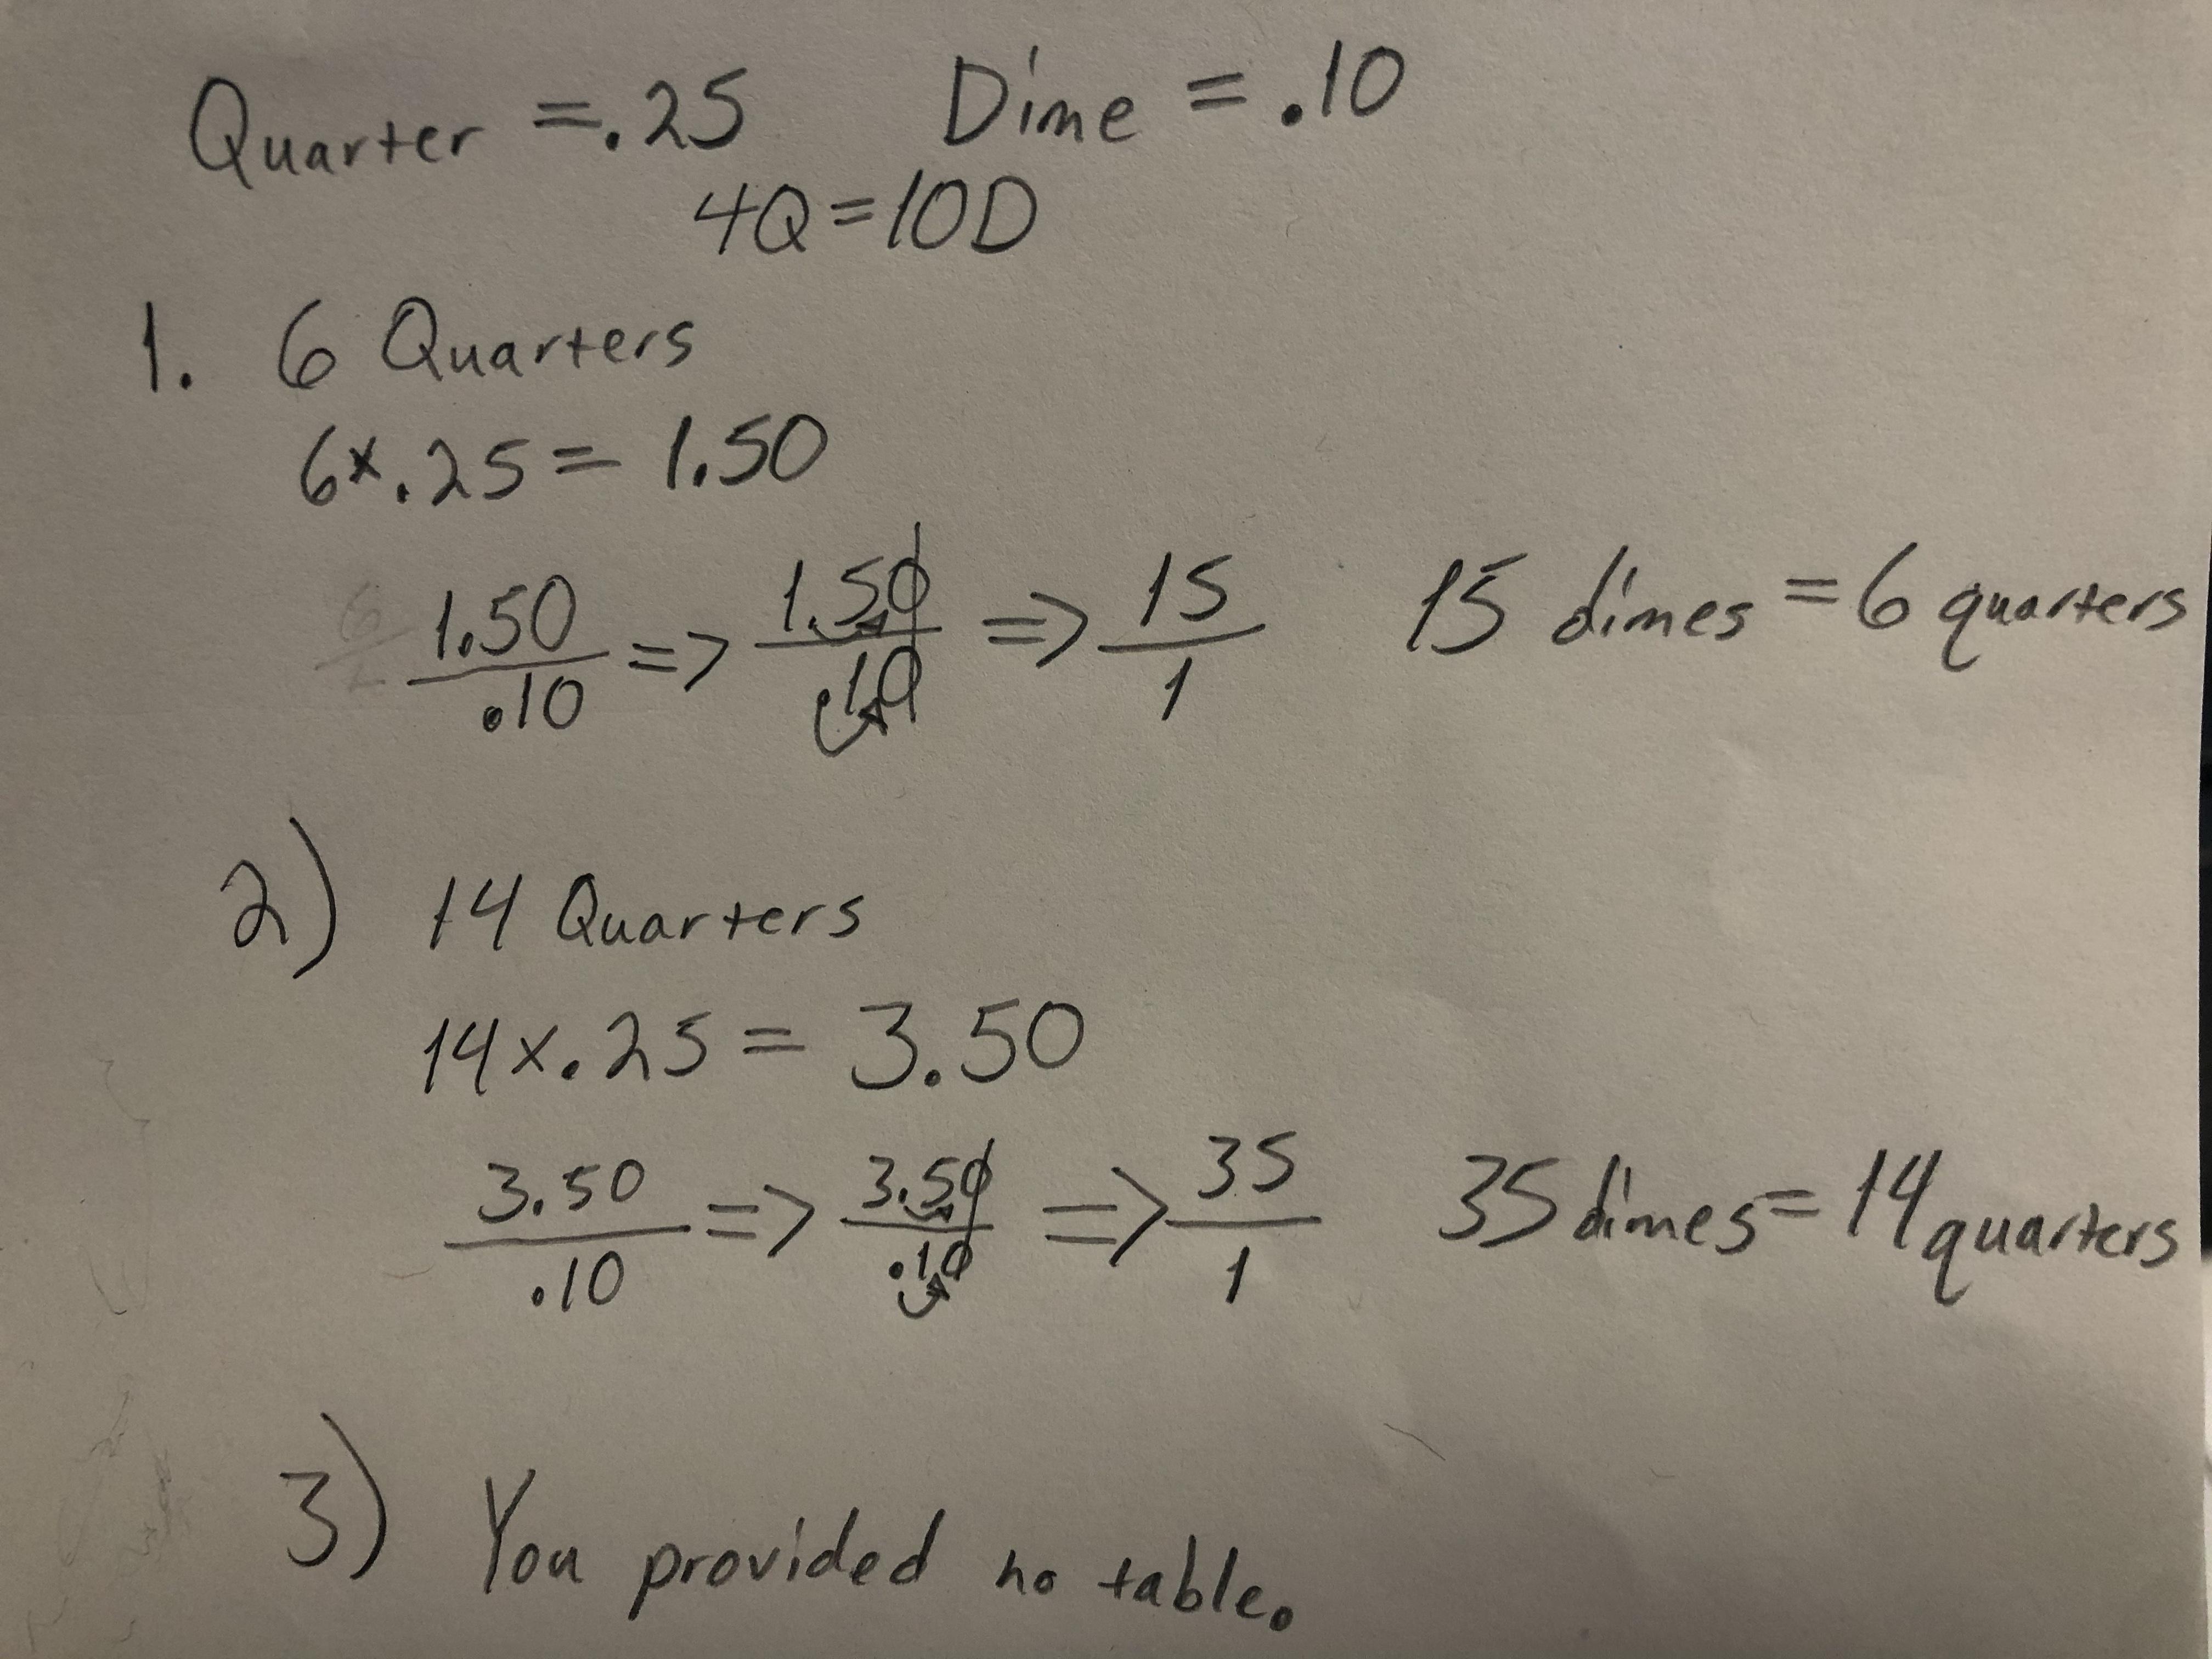 Quarter = .25 Dime = .10
4Q = 10D
1. 6 Quarters
6 x .25 = 1.50
1.50/.10 => 1.50/.10 => 15/1 15 dimes = 6 quarters
2) 14 Quarters
14 x .25 = 3.50
3.50/.10 => 3.50/.10 => 35/1 35 dimes = 14 quarters
3) You provided no table.